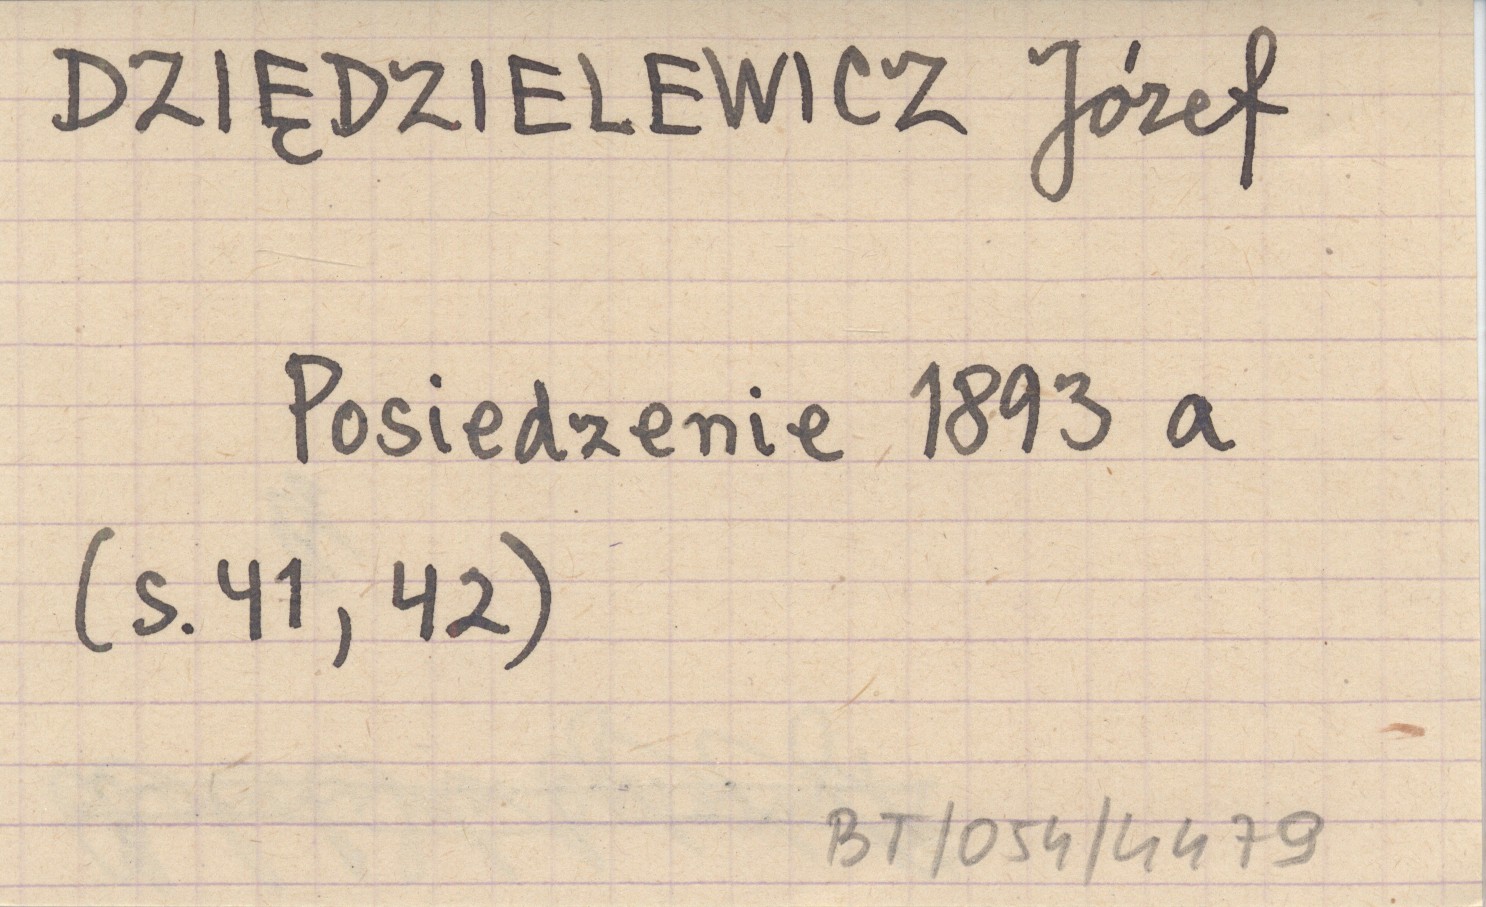 DZIĘDZIELEWICZ Józef
Posiedzenie 1893 a
(s. 41, 42)
BT/054/4479